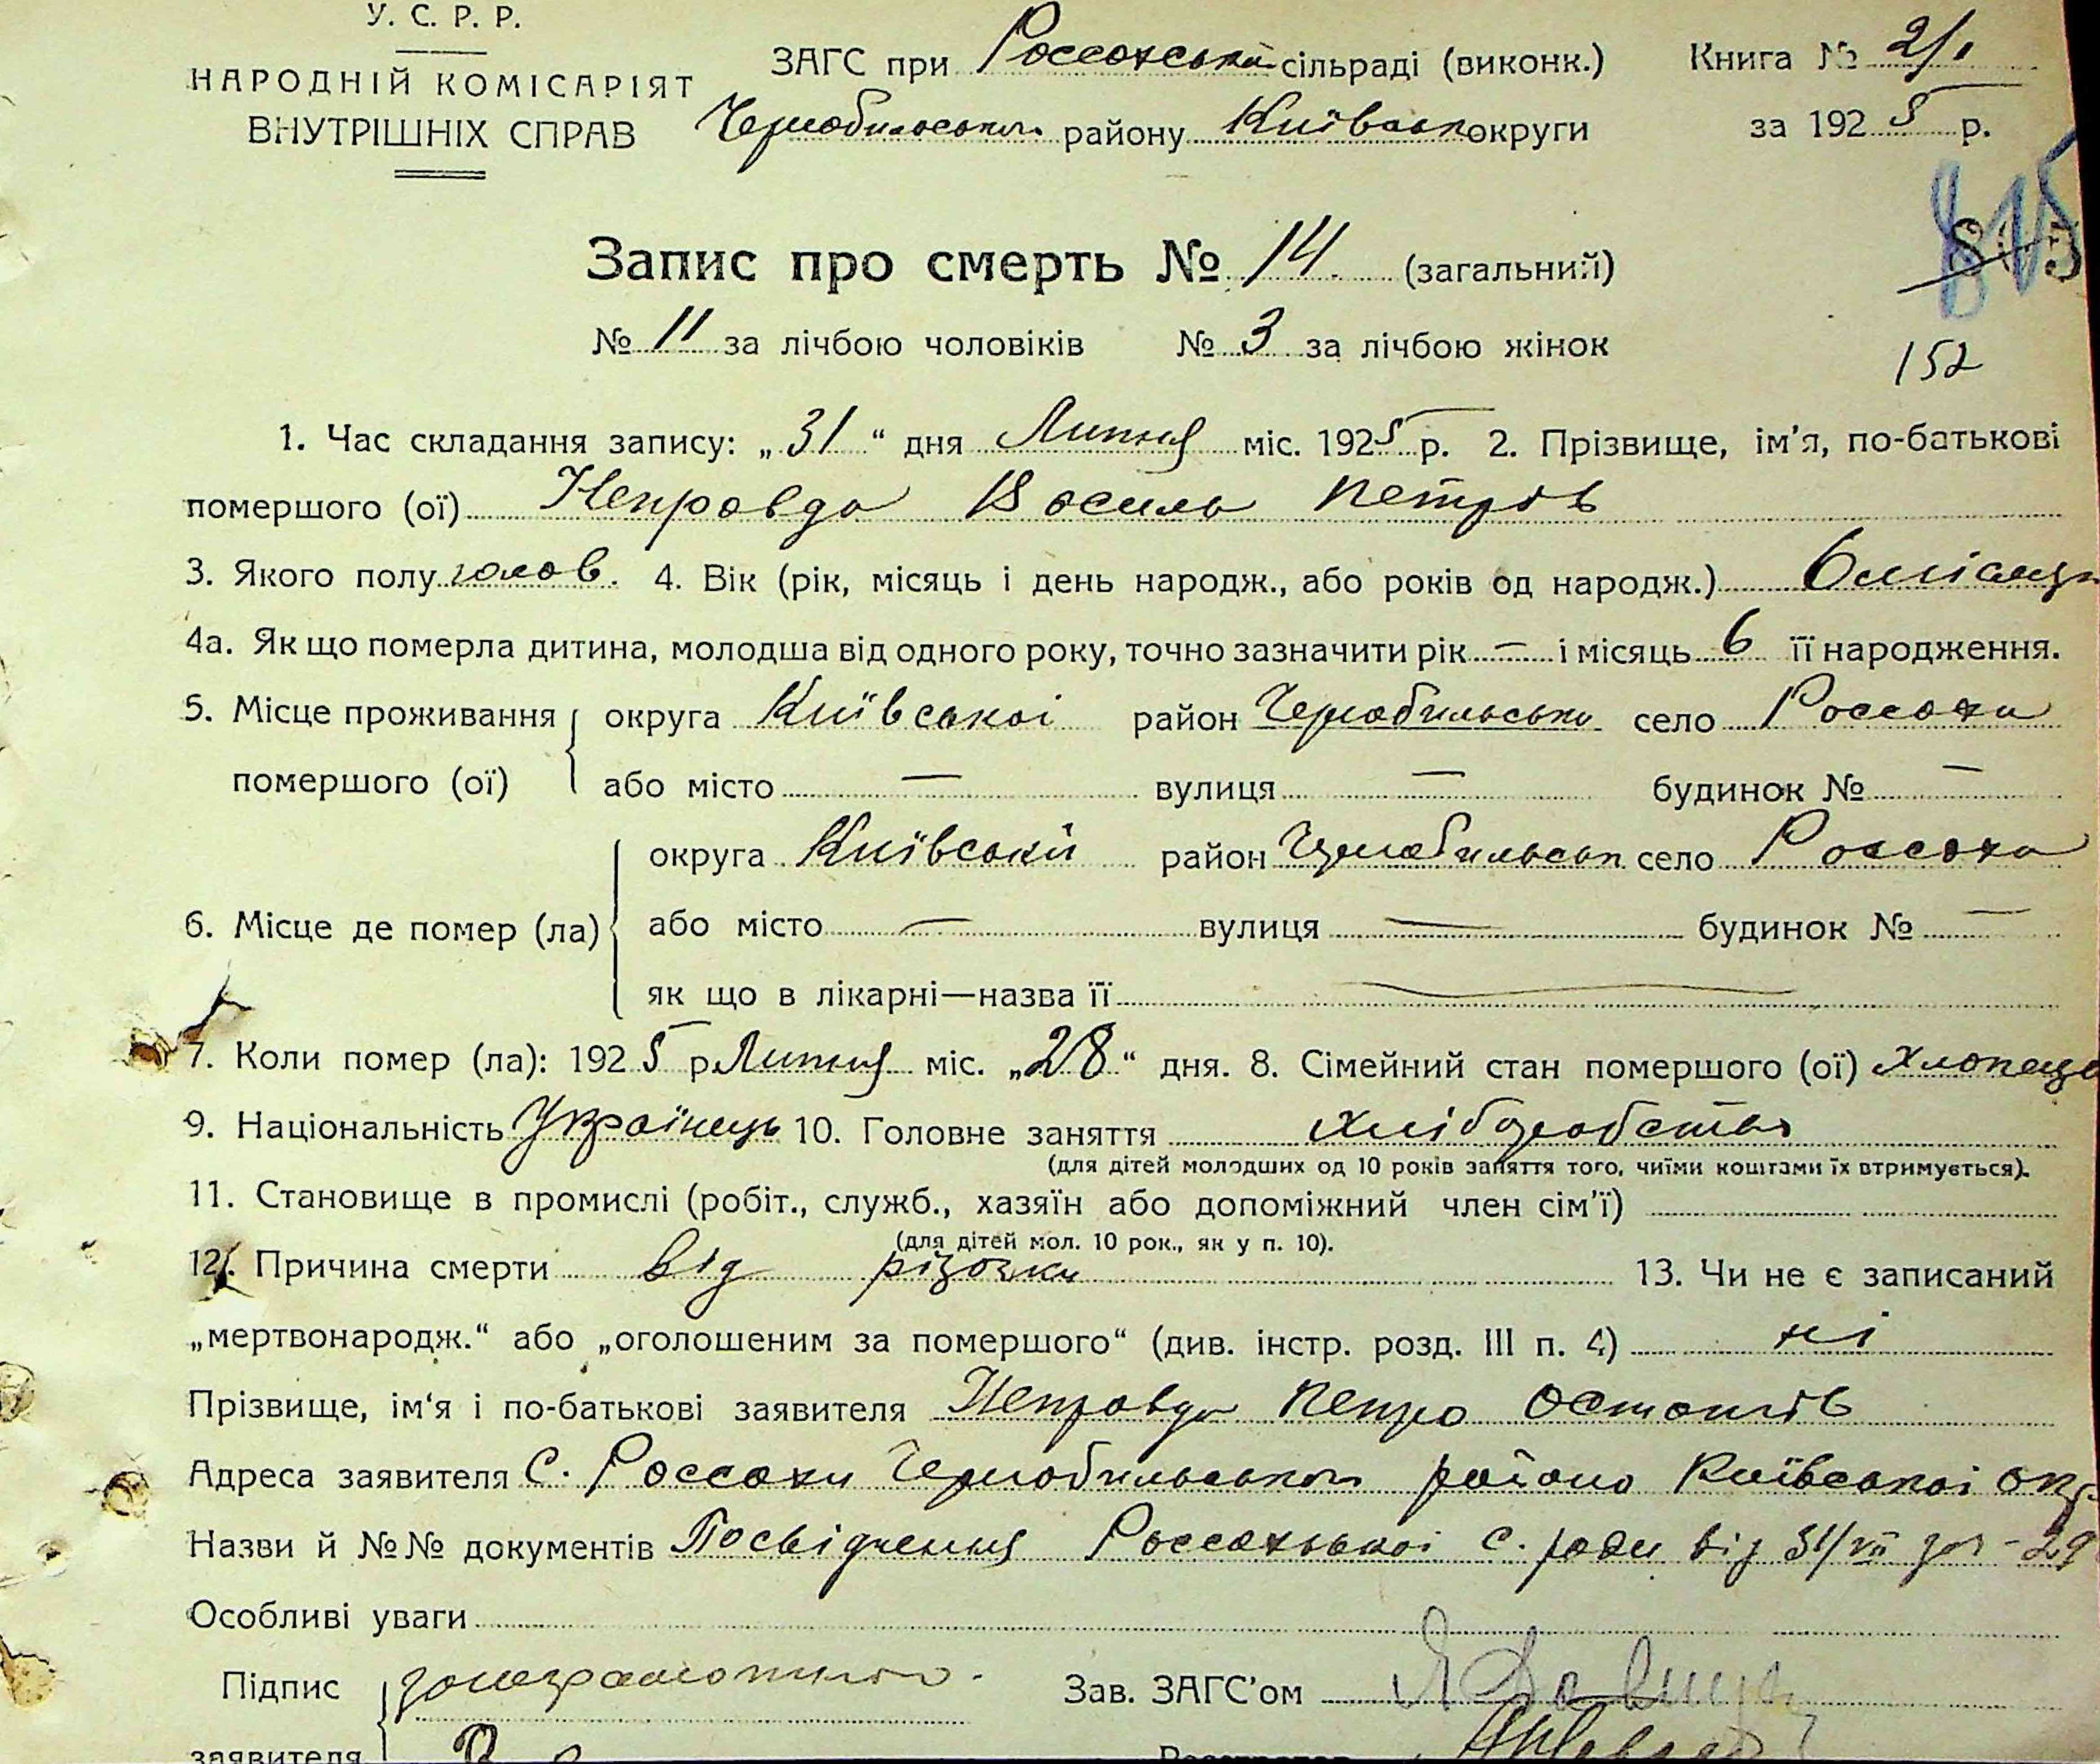 У. С. Р. Р.
НАРОДНІЙ КОМІСАРІЯТ
ВНУТРІШНІХ СПРАВ
ЗАГС при Россохській сільраді (виконк.)
Книга № 2/1
Чернобильського району Київської округи
за 1925 р.
815
Запис про смерть № 14. (загальний)
№ 11 за лічбою чоловіків № 3 за лічбою жінок
152
1. Час складання запису: „31“ дня Липня міс. 1925 р. 2. Прізвище, ім’я, по-батькові
помершого (ої) Неправда Василь Петрів
3. Якого полу чолов. 4. Вік (рік, місяць і день народж., або років од народж.) 6 місяців
4а. Як що померла дитина, молодша від одного року, точно зазначити рік — і місяць 6 її народження.
5. Місце проживання округа Київської район Чернобильськи село Россохи
помершого (ої) або місто — вулиця — будинок № —
округа Київській район Чернобильськ село Россоха
6. Місце де помер (ла) або місто — вулиця — будинок № —
як що в лікарні—назва її —
7. Коли помер (ла): 1925 р. Липня міс. „28“ дня. 8. Сімейний стан помершого (ої) хлопець
9. Національність Українець 10. Головне заняття хліборобство
(для дітей молодших од 10 років заняття того, чиїми коштами їх втримується).
11. Становище в промислі (робіт., служб., хазяїн або допоміжний член сім’ї)
(для дітей мол. 10 рок., як у п. 10).
12. Причина смерти від різачки 13. Чи не є записаний
„мертвонародж.“ або „оголошеним за помершого“ (див. інстр. розд. III п. 4) ні
Прізвище, ім‘я і по-батькові заявителя Неправда Петро Остапів
Адреса заявителя С. Россохи Чернобильського району Київської окр.
Назви й №№ документів Посвідчення Россохської С. ради від 31/VII за № 29
Особливі уваги
Підпис Зав. ЗАГС’ом
заявителя